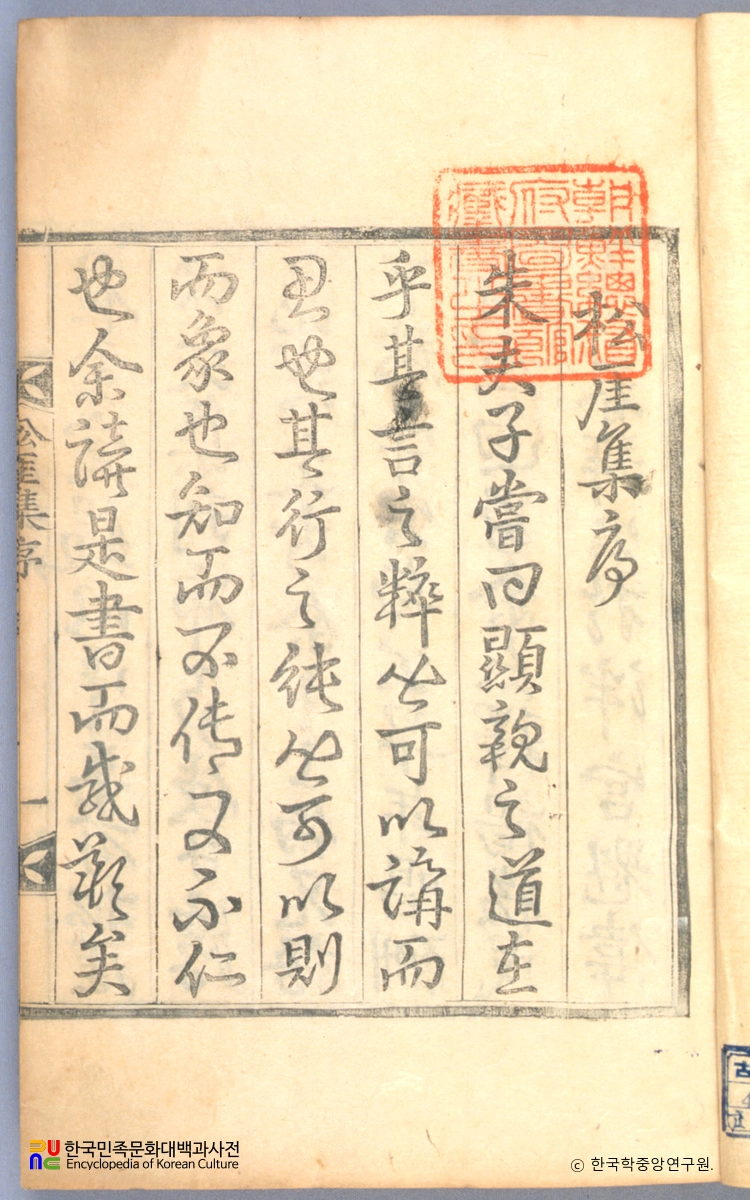 朝鮮總督
府圖書館
藏書之印
松厓集序
朱夫子嘗曰顯親之道在
乎其言之粹必可以講而
思也其行之純必可以則
而象也知而不傳又不仁
也余讀是書而感歎矣
松厓集序 一
古
한국민족문화대백과사전
Encyclopedia of Korean Culture
ⓒ 한국학중앙연구원.